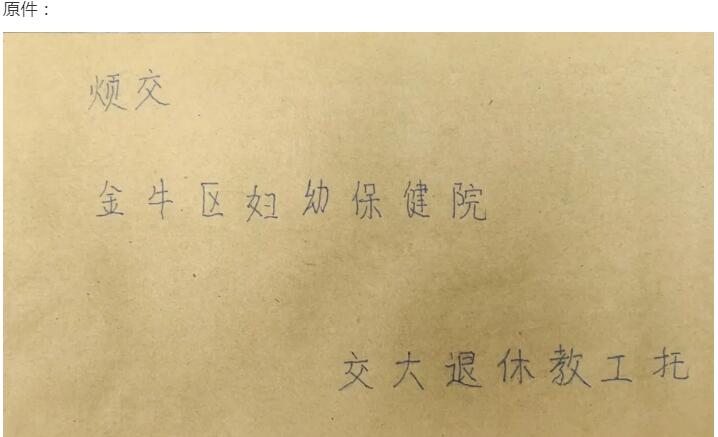 原件：
烦交
金牛区妇幼保健院
交大退休教工托